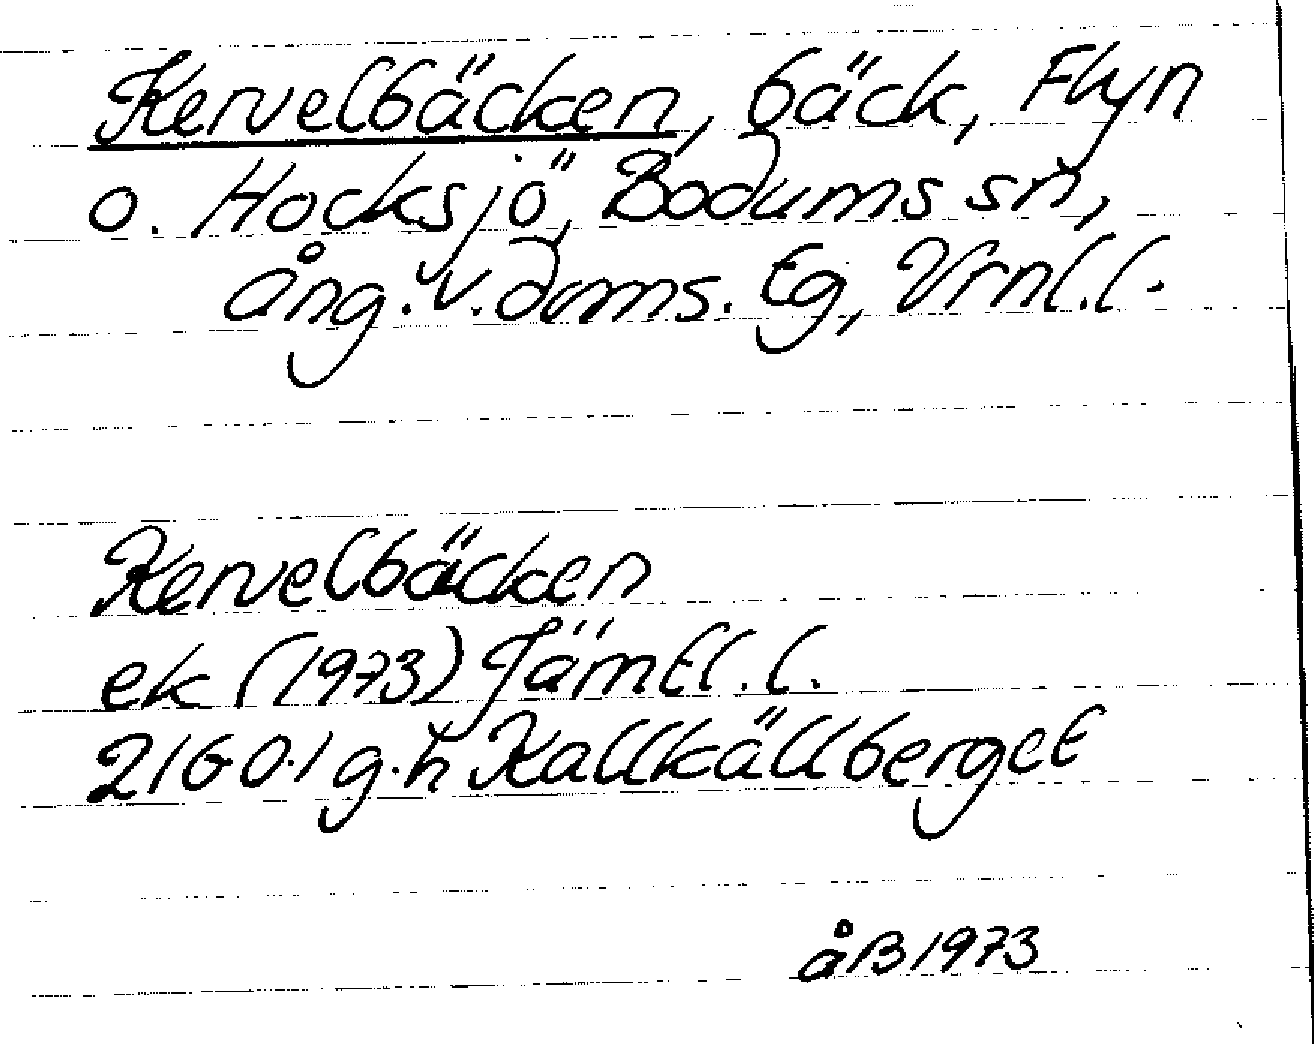 Kervelbäcken, bäck, Flyn
o. Hocksjö, Bodums sn,
Ång. v. doms. tg, Vrnl. l.
Kervelbäcken
ek (1973) Jämtl. l.
21601 g.h Kallkällberget
åB 1973